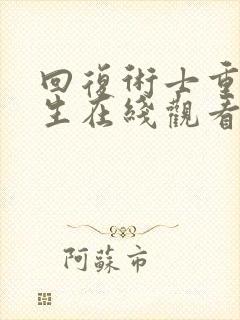 回復術士重
生在綫觀看
阿蘇市